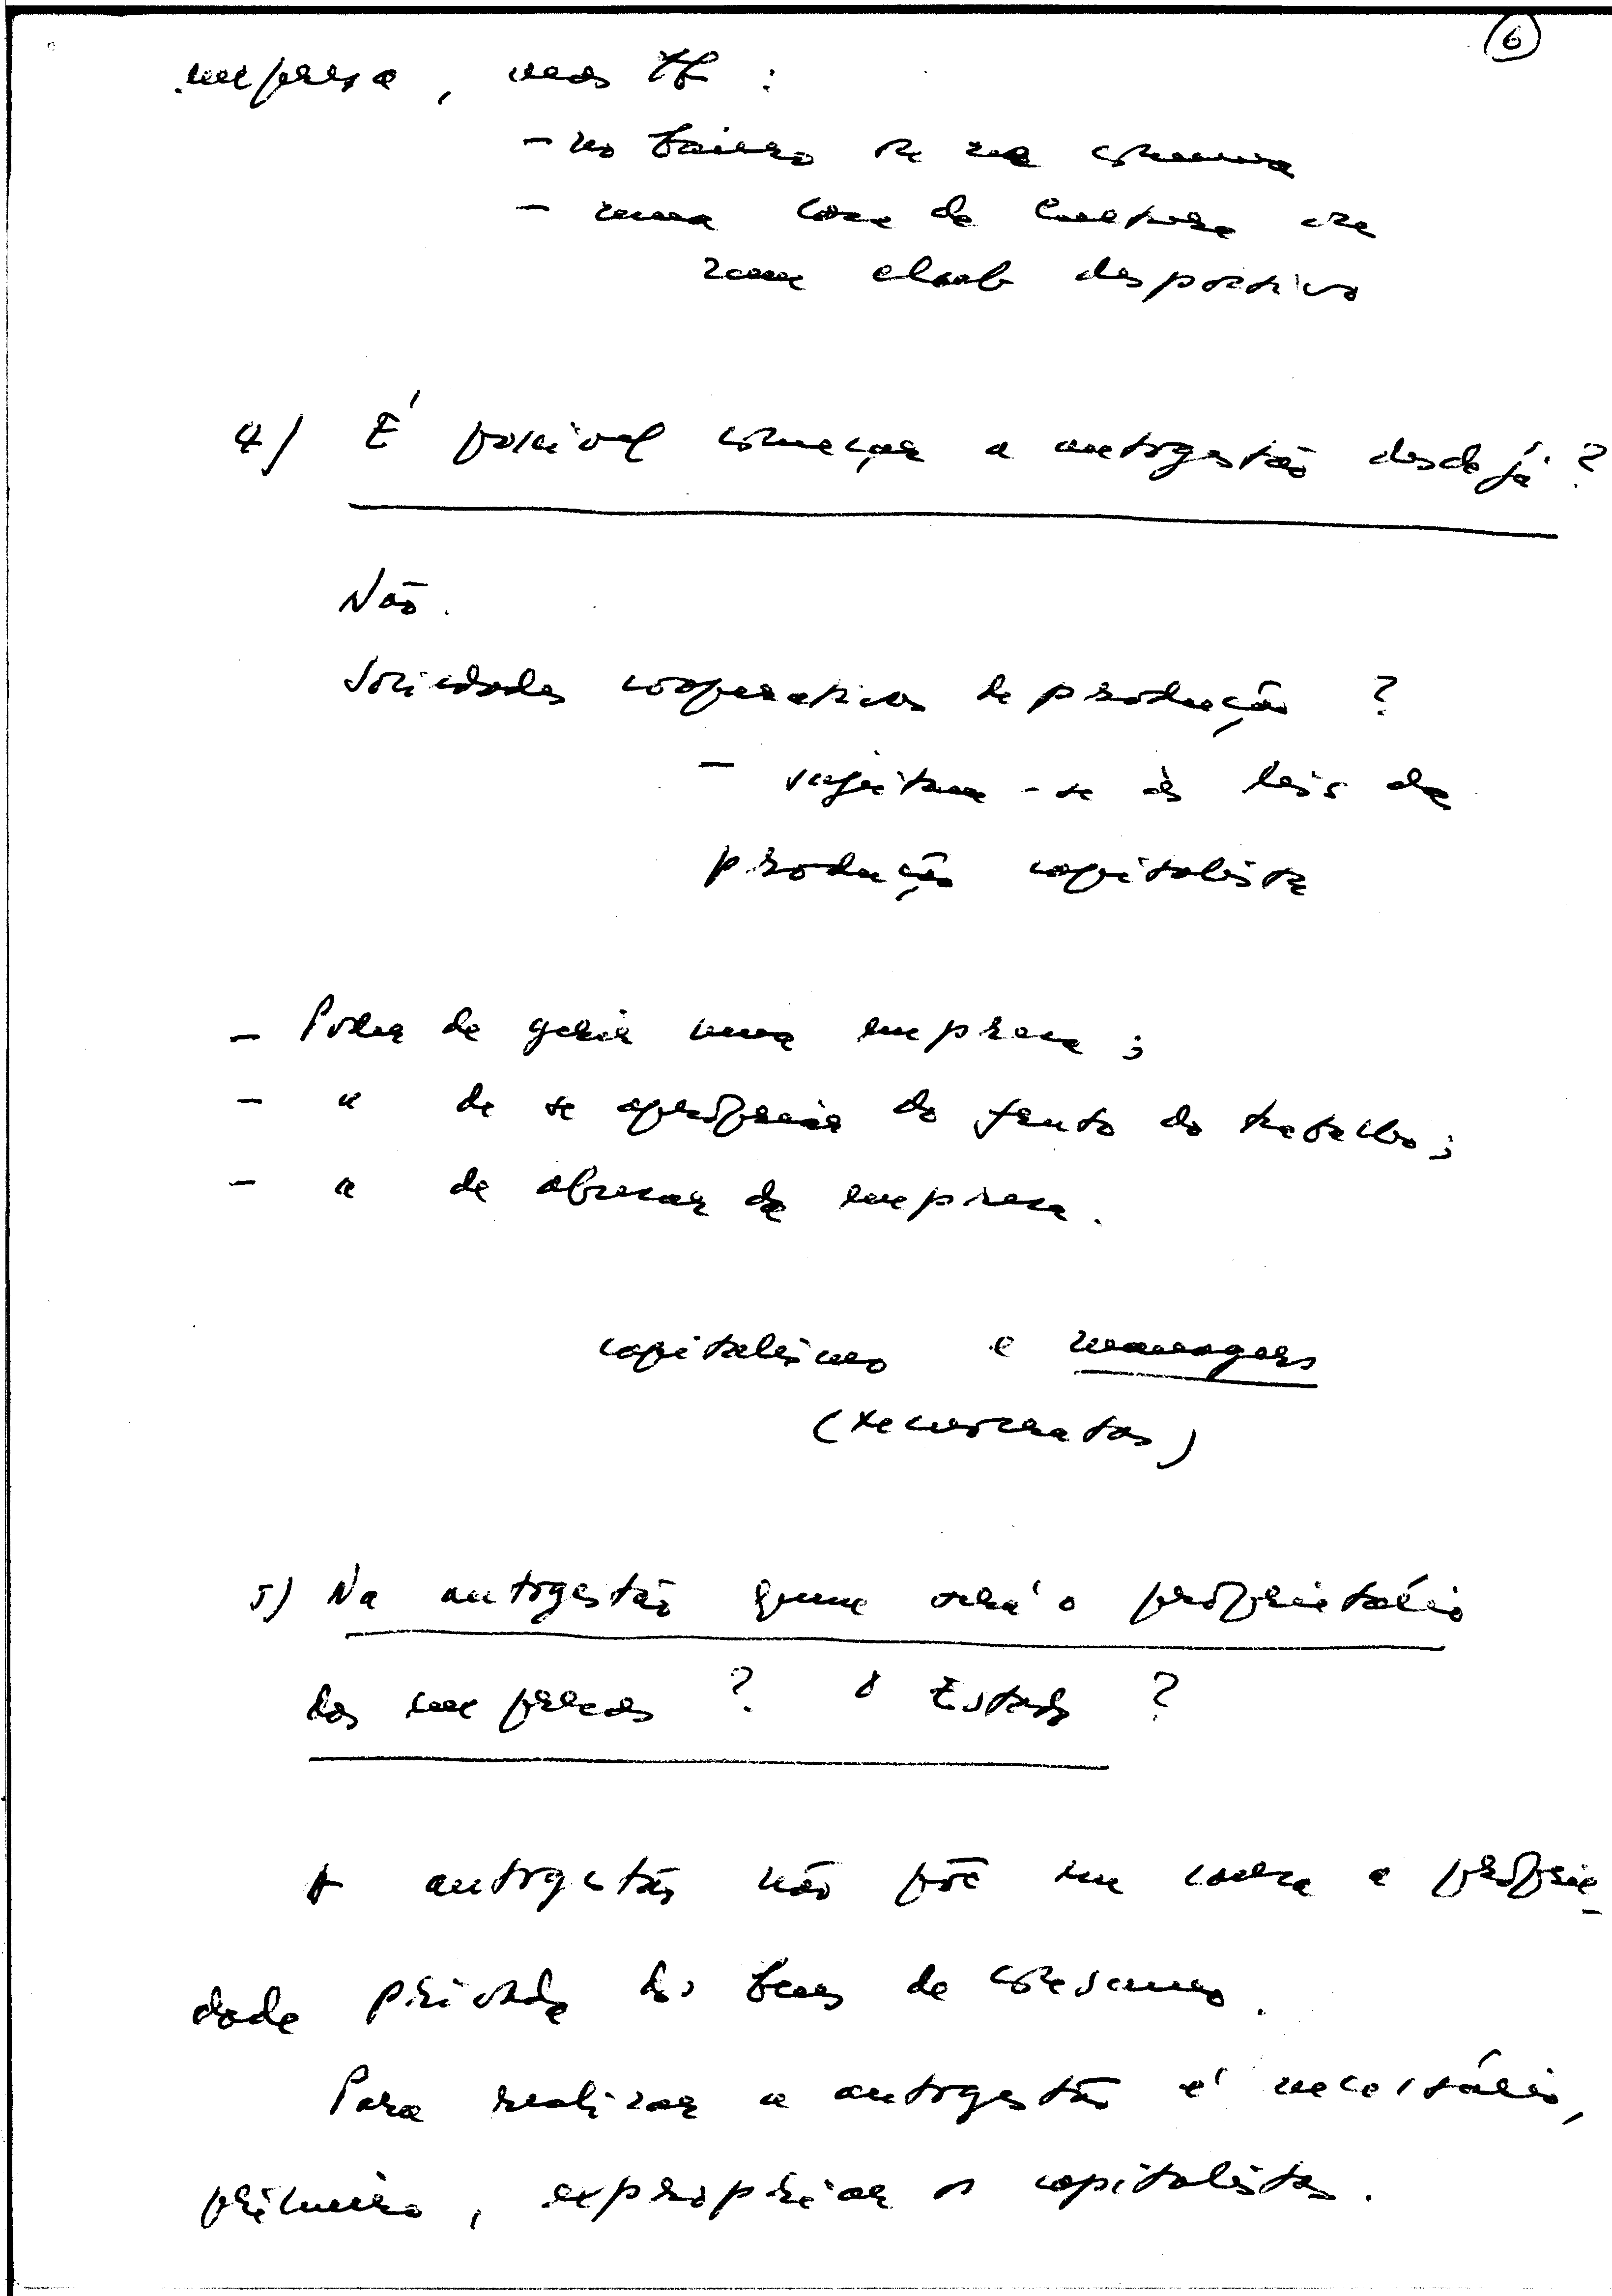 6
empresa, mas tb :
- no bairro ou na comuna
- numa casa de cultura ou
num club desportivo
4) É possível começar a autogestão desde já ?
Não.
Sociedades cooperativas de produção ?
- sujeitam-se às leis da
produção capitalista
- Poder de gerir uma empresa ;
- " de se apropriar do fruto do trabalho ;
- " de dispor da empresa.
capitalismo e managers
(tecnocratas)
5) Na autogestão quem será o proprietário
das empresas ? O Estado ?
A autogestão não põe em causa a proprie-
dade privada dos bens de consumo.
Para realizar a autogestão é necessário,
primeiro, expropriar os capitalistas.